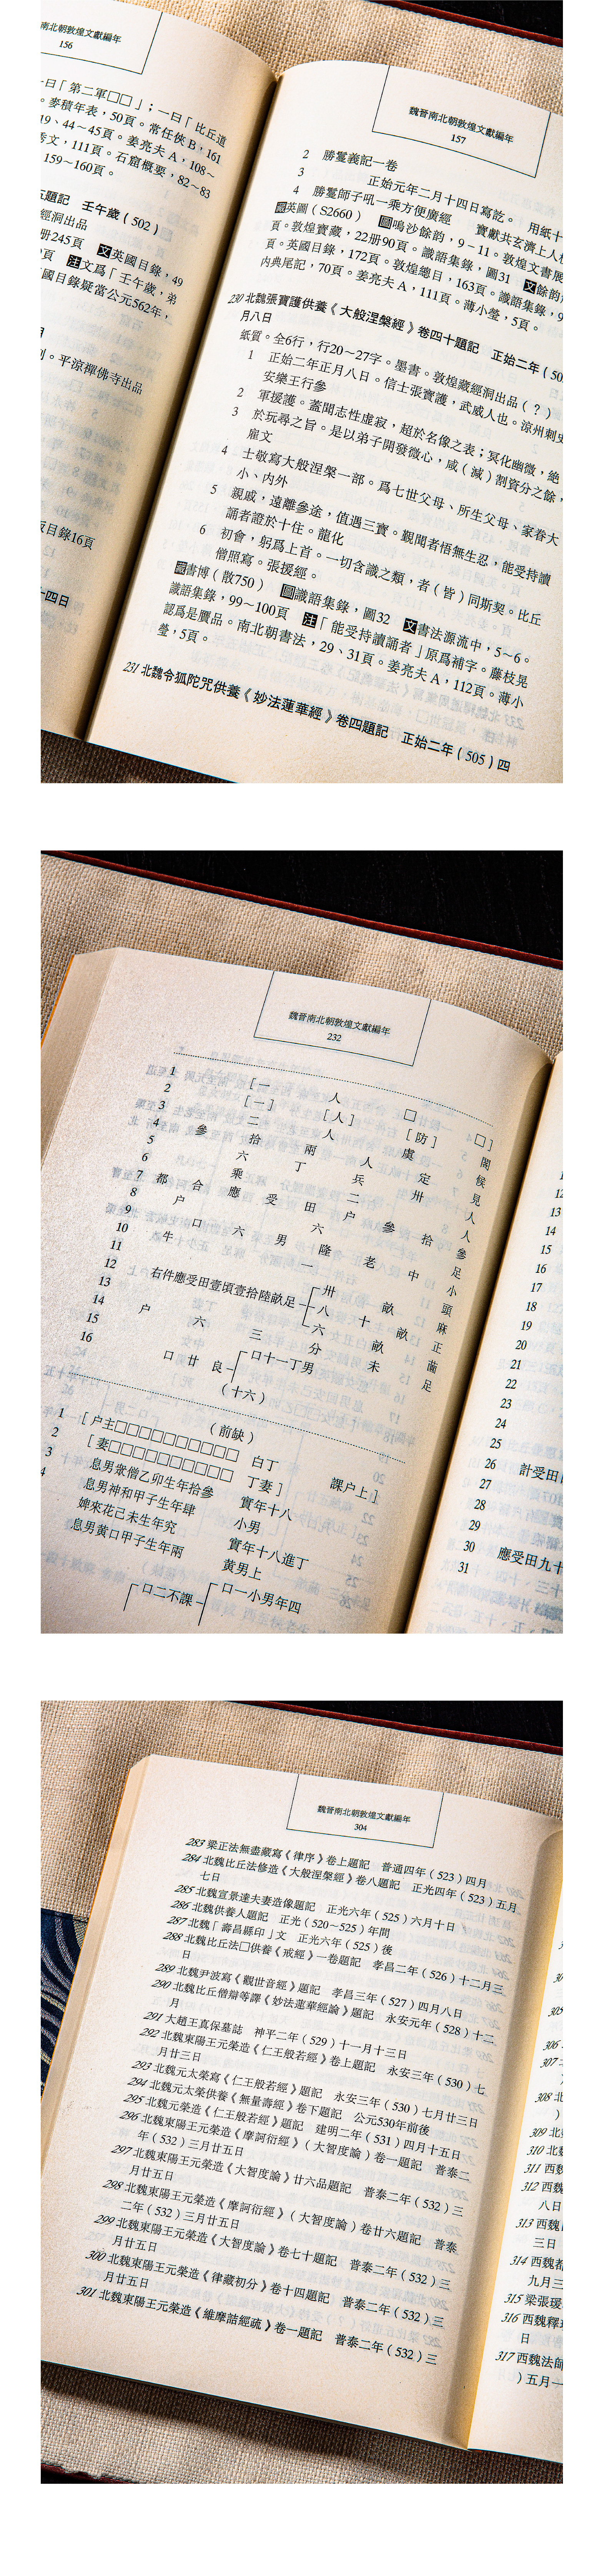 南北朝敦煌文獻編年
156
一曰「第二軍□□」；一曰「比丘道
。麥積年表，50頁。常任俠 B，161
19、44～45頁。姜亮夫 A，108～
秀文，111頁。石窟概要，82～83
159～160頁。
題記　壬午歲（502）
經洞出品
冊245頁　文英國目錄，49
頁　注文爲「壬午歲，弟
國目錄疑當公元562年，
。平涼禪佛寺出品
目錄16頁
十四日
魏晉南北朝敦煌文獻編年
157
2　勝鬘義記一卷
3　正始元年二月十四日寫訖。　用紙十
4　勝鬘師子吼一乘方便廣經　　寶獻共玄濟上人校
英圖（S2660）　圖鳴沙餘韵，9－11。敦煌文書展
頁。敦煌寶藏，22册90頁。識語集錄，圖31　文餘韵
頁。英國目錄，172頁。敦煌總目，163頁。識語集錄，9
内典尾記，70頁。姜亮夫 A，111頁。薄小瑩，5頁。
230 北魏張寶護供養《大般涅槃經》卷四十題記　正始二年（50
月八日
紙質。全6行，行20～27字。墨書。敦煌藏經洞出品（？）
1　正始二年正月八日。信士張寶護，武威人也。涼州刺史
安樂王行參
2　軍援護。蓋聞志性虛寂，超於名像之表；冥化幽微，絶
3　於玩尋之旨。是以弟子開發微心，咸（減）割資分之餘，
雇文
4　士敬寫大般涅槃一部。爲七世父母、所生父母、家眷大
小、内外
5　親戚，遠離參途，值遇三寶。覲聞者悟無生忍，能受持讀
誦者證於十住。龍化
6　初會，躬爲上首。一切含識之類，者（皆）同斯契。比丘
僧照寫。張援經。
書博（散750）　圖識語集錄，圖32　文書法源流中，5～6。
識語集錄，99～100頁　注「能受持讀誦者」原爲補字。藤枝晃
認爲是贋品。南北朝書法，29、31頁。姜亮夫 A，112頁。薄小
瑩，5頁。
231 北魏令狐陀咒供養《妙法蓮華經》卷四題記　正始二年（505）四
魏晉南北朝敦煌文獻編年
232
1　［一　人　□　□］
2　［一］　［人］　［防］　閣
3　二　人　虞　候
4　參　拾　兩　人　定　見
5　六　丁　兵　卅　人
6　乘　二　人
7　都　合　應　受　田　户　參　拾　參
8　户　六　足
9　口　六　男　隆　老　中　小
10　牛　一　頭
11　麻
12　右件應受田壹頃壹拾陸畝足　卅　畝　正
13　八　十　畝　菡
14　户　六　六　畝　足
15　三　分　未
16　口　廿　良　口十一丁男
（十六）
（前缺）
1　［户主□□□□□□□□□□　白丁　課户上］
2　［妻□□□□□□□□□□　丁妻］
3　息男衆僧乙卯生年拾參　實年十八
4　息男神和甲子生年肆　小男
婢來花己未生年究　實年十八進丁
息男黃口甲子生年兩　黄男上
口二不課　口一小男年四
12
13
14
15
16
17
18
19
20
21
22
23
24
25
26　計受田
27
28
29
30　應受田九十
31
魏晉南北朝敦煌文獻編年
304
283 梁正法無盡藏寫《律序》卷上題記　普通四年（523）四月
284 北魏比丘法修造《大般涅槃經》卷八題記　正光四年（523）五月
七日
285 北魏宣景達夫妻造像題記　正光六年（525）六月十日
286 北魏供養人題記　正光（520～525）年間
287 北魏「壽昌縣印」文　正光六年（525）後
288 北魏比丘法□供養《戒經》一卷題記　孝昌二年（526）十二月三
日
289 北魏尹波寫《觀世音經》題記　孝昌三年（527）四月八日
290 北魏比丘僧辯等譯《妙法蓮華經論》題記　永安元年（528）十二
月
291 大趙王真保墓誌　神平二年（529）十一月十三日
292 北魏東陽王元榮造《仁王般若經》卷上題記　永安三年（530）七
月廿三日
293 北魏元太榮寫《仁王般若經》題記　永安三年（530）七月廿三日
294 北魏元太榮供養《無量壽經》卷下題記　公元530年前後
295 北魏元榮造《仁王般若經》題記　建明二年（531）四月十五日
296 北魏東陽王元榮造《摩訶衍經》（大智度論）卷一題記　普泰二
年（532）三月廿五日
297 北魏東陽王元榮造《大智度論》廿六品題記　普泰二年（532）三
月廿五日
298 北魏東陽王元榮造《摩訶衍經》（大智度論）卷廿六題記　普泰
二年（532）三月廿五日
299 北魏東陽王元榮造《大智度論》卷七十題記　普泰二年（532）三
月廿五日
300 北魏東陽王元榮造《律藏初分》卷十四題記　普泰二年（532）三
月廿五日
301 北魏東陽王元榮造《維摩詰經疏》卷一題記　普泰二年（532）三
305
306
307
308 北
309 北
310 北
311 西魏
312 西魏
八日
313 西魏
三日
314 西魏都
九月三
315 梁張瑗
316 西魏釋
日
317 西魏法師
）五月一